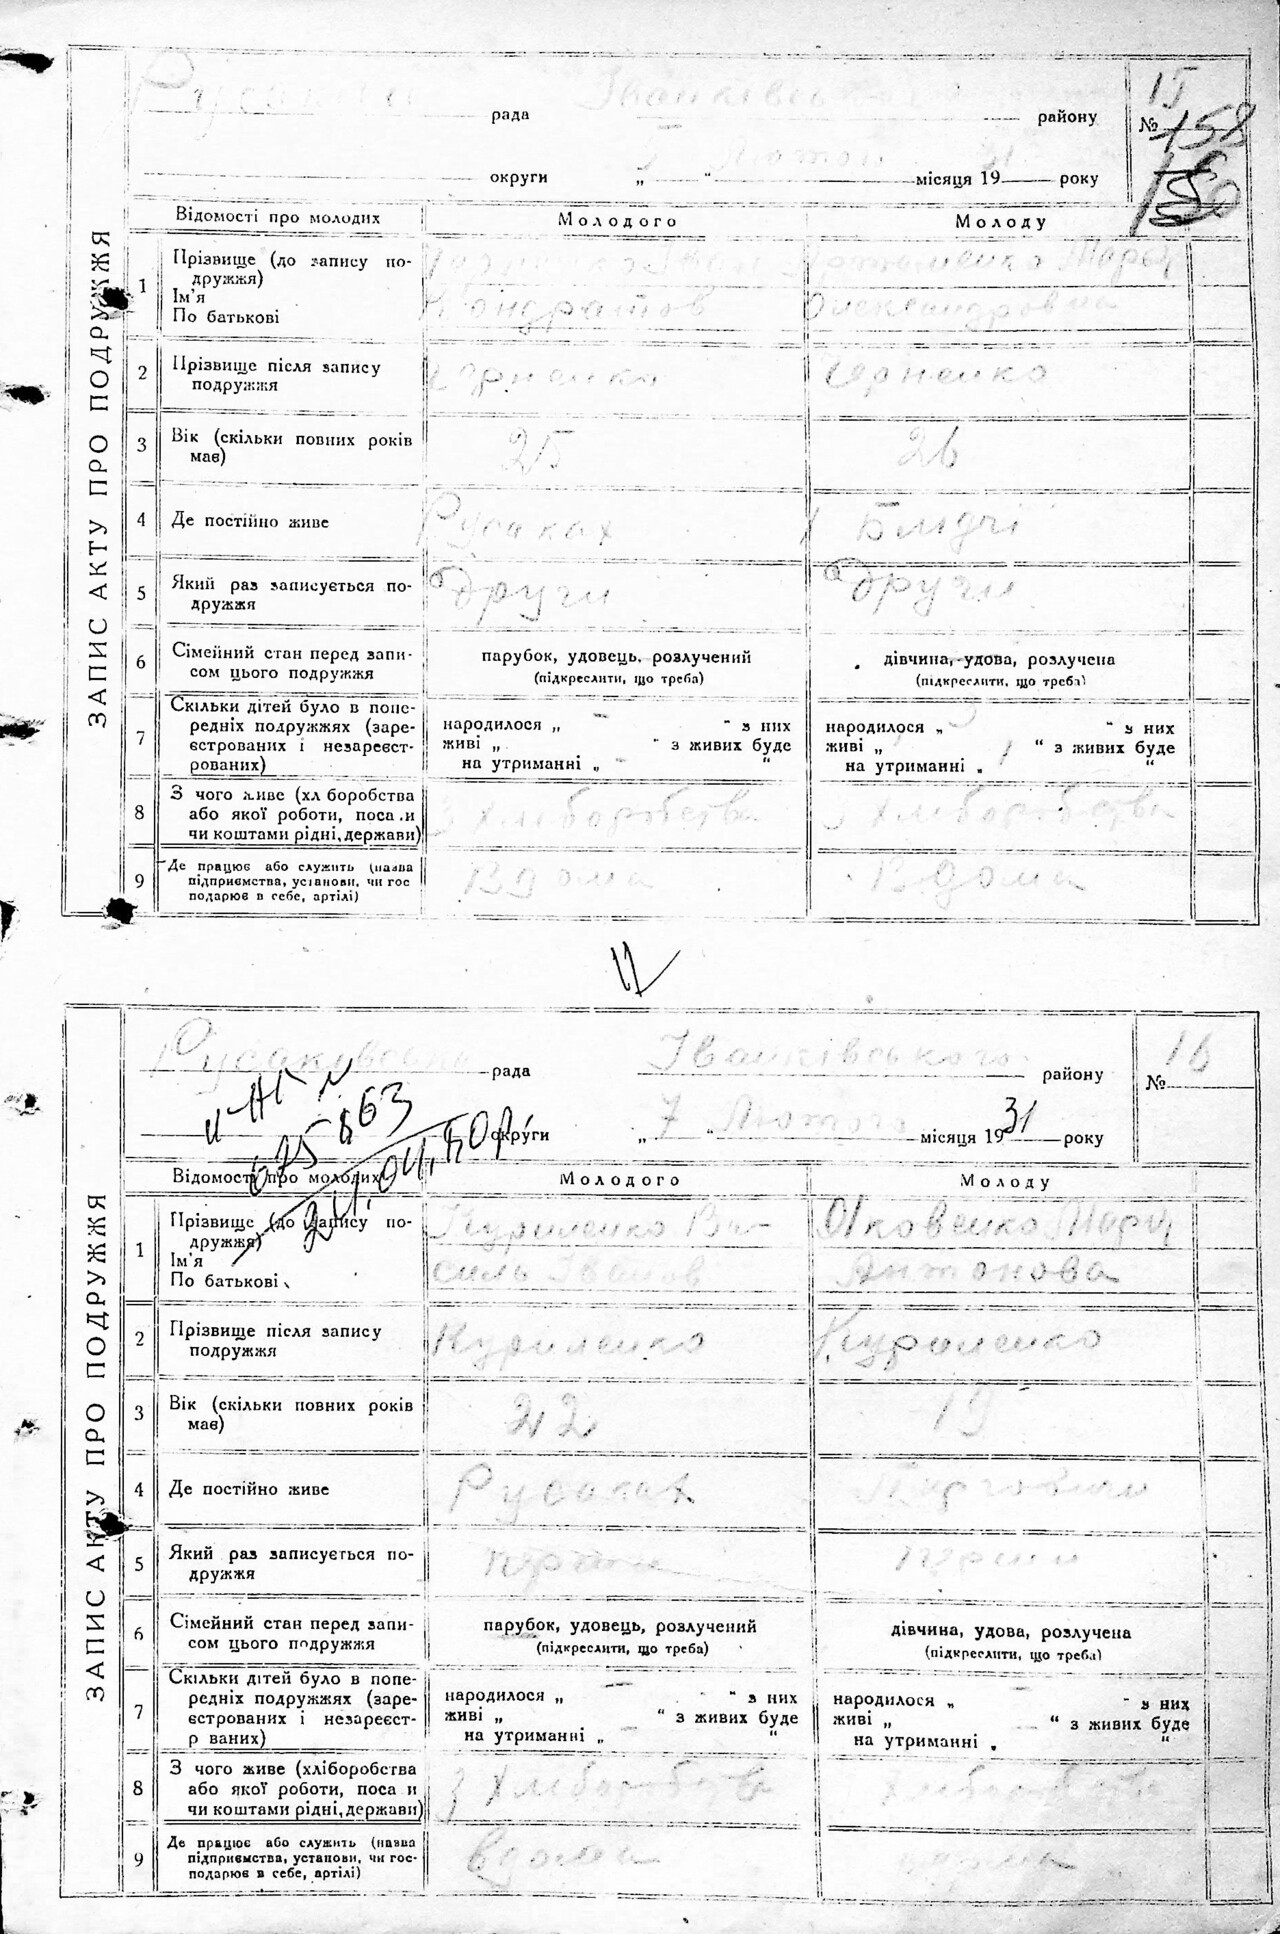 ЗАПИС АКТУ ПРО ПОДРУЖЖЯ
рада Іванківського району
№ 15
158
округи „ 5 “ Лютого місяця 19 31 року
Відомості про молодих Молодого Молоду
1 Прізвище (до запису по-
дружжя)
Ім’я
По батькові
Кондратов Олександровна
2 Прізвище після запису
подружжя
3 Вік (скільки повних років
має)
25 26
4 Де постійно живе Русаках Блидчі
5 Який раз записується по-
дружжя
други други
6 Сімейний стан перед запи-
сом цього подружжя
парубок, удовець, розлучений
(підкреслити, що треба)
дівчина, удова, розлучена
(підкреслити, що треба)
7 Скільки дітей було в попе-
редніх подружжях (заре-
єстрованих і незареєст-
рованих)
народилося „ “ з них
живі „ “ з живих буде
на утриманні „ “
народилося „ 3 “ з них
живі „ “ з живих буде
на утриманні „ “
8 З чого живе (хл боробства
або якої роботи, поса и
чи коштами рідні, держави)
З хлиборобства З хлиборобства
9 Де працює або служить (назва
підприємства, установи, чи гос
подарює в себе, артілі)
Вдома Вдома
ЗАПИС АКТУ ПРО ПОДРУЖЖЯ
Русаківська рада Іванківського району
№ 16
округи „ 7 “ Лютого місяця 19 31 року
Відомості про молодих Молодого Молоду
1 Прізвище (до запису по-
дружжя)
Ім’я
По батькові
Куриленко Ва- Яковенко Марія
силь Іванов Антонова
2 Прізвище після запису
подружжя
Куриленко Куриленко
3 Вік (скільки повних років
має)
22 19
4 Де постійно живе Русаках
5 Який раз записується по-
дружжя
перши перши
6 Сімейний стан перед запи-
сом цього подружжя
парубок, удовець, розлучений
(підкреслити, що треба)
дівчина, удова, розлучена
(підкреслити, що треба)
7 Скільки дітей було в попе-
редніх подружжях (заре-
єстрованих і незареєст-
р ваних)
народилося „ “ з них
живі „ “ з живих буде
на утриманні „ “
народилося „ “ з них
живі „ “ з живих буде
на утриманні „ “
8 З чого живе (хліборобства
або якої роботи, поса и
чи коштами рідні, держави)
З хлиборобства хлиборобства
9 Де працює або служить (назва
підприємства, установи, чи гос-
подарює в себе, артілі)
вдома вдома